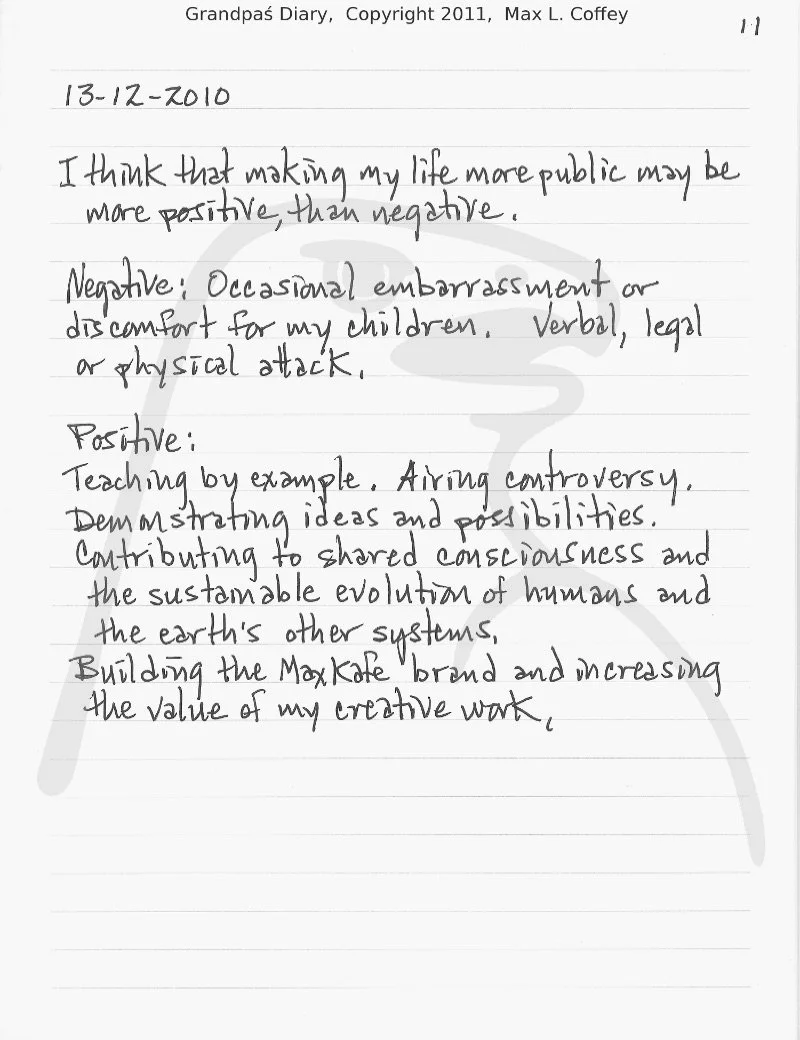 Grandpaś Diary, Copyright 2011, Max L. Coffey
11
13-12-2010
I think that making my life more public may be
more positive, than negative.
Negative: Occasional embarrassment or
discomfort for my children. Verbal, legal
or physical attack.
Positive:
Teaching by example. Airing controversy.
Demonstrating ideas and possibilities.
Contributing to shared consciousness and
the sustainable evolution of humans and
the earth's other systems.
Building the MaxKafe brand and increasing
the value of my creative work.